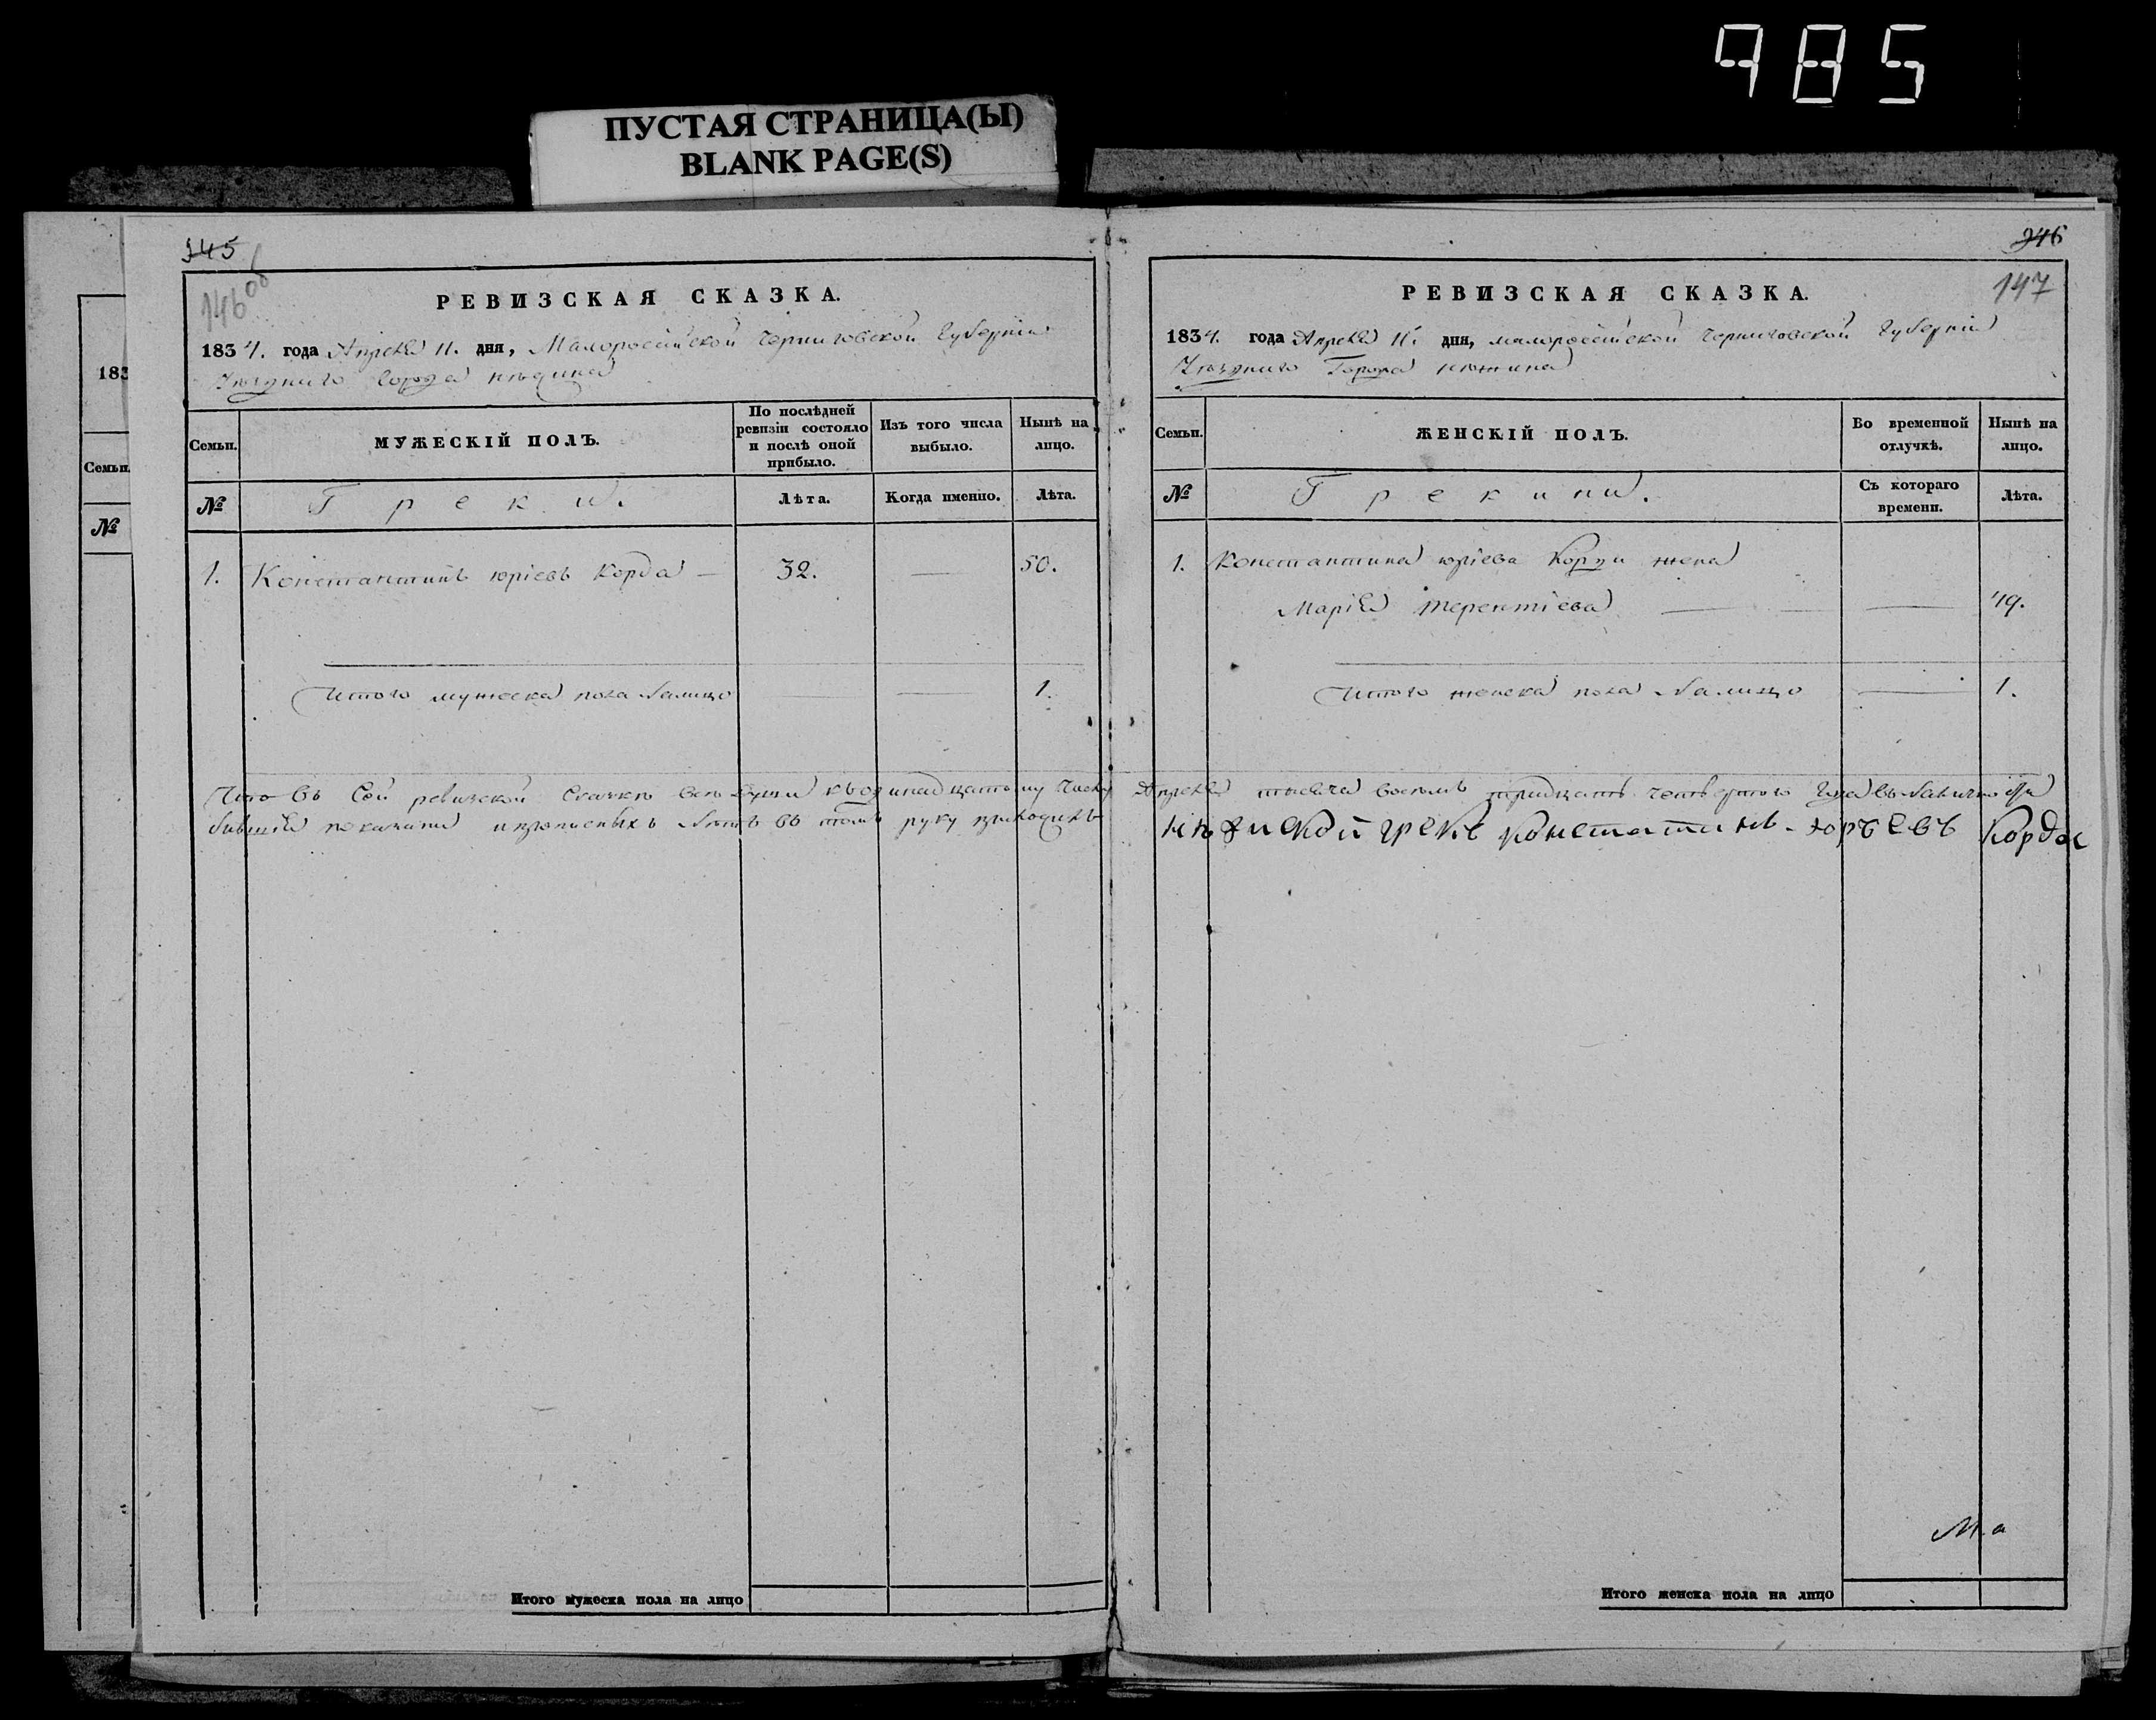 985
ПУСТАЯ СТРАНИЦА(Ы)
BLANK PAGE(S)
183
Семьи.
№
145
146 об
РЕВИЗСКАЯ СКАЗКА.
1834. года Апреля 11. дня, Малороссійской Черниговской Губерніи
Уѣзднаго города Нѣжина
Семьи.
МУЖЕСКІЙ ПОЛЪ.
По послѣдней ревизіи состояло и послѣ оной прибыло.
Изъ того числа выбыло.
Нынѣ на лицо.
№
Греки.
Лѣта.
Когда именно.
Лѣта.
1. Константинъ юріевъ Корда — 32. — 50.
Итого мужеска пола налицо — — 1.
Что въ Сей ревизской Сказкѣ всѣ души къ одинадцатому Числу
лѣтъ въ томъ руку
Итого мужеска пола на лицо
146
147
РЕВИЗСКАЯ СКАЗКА.
1834. года Апреля 11. дня, малороссійской Черниговской Губерніи
Уѣзднаго Города нѣжина
Семьи.
ЖЕНСКІЙ ПОЛЪ.
Во временной отлучкѣ.
Нынѣ на лицо.
№
Грекини.
Съ котораго времени.
Лѣта.
1. Константина юріева Корди жена
Марія Терентіева — — — 49.
Итого женска пола Налицо — 1.
Апреля тысяча восемъ тридцать четвертого Года въ
грекъ Константинъ юрьевъ Корда
М. а
Итого женска пола на лицо